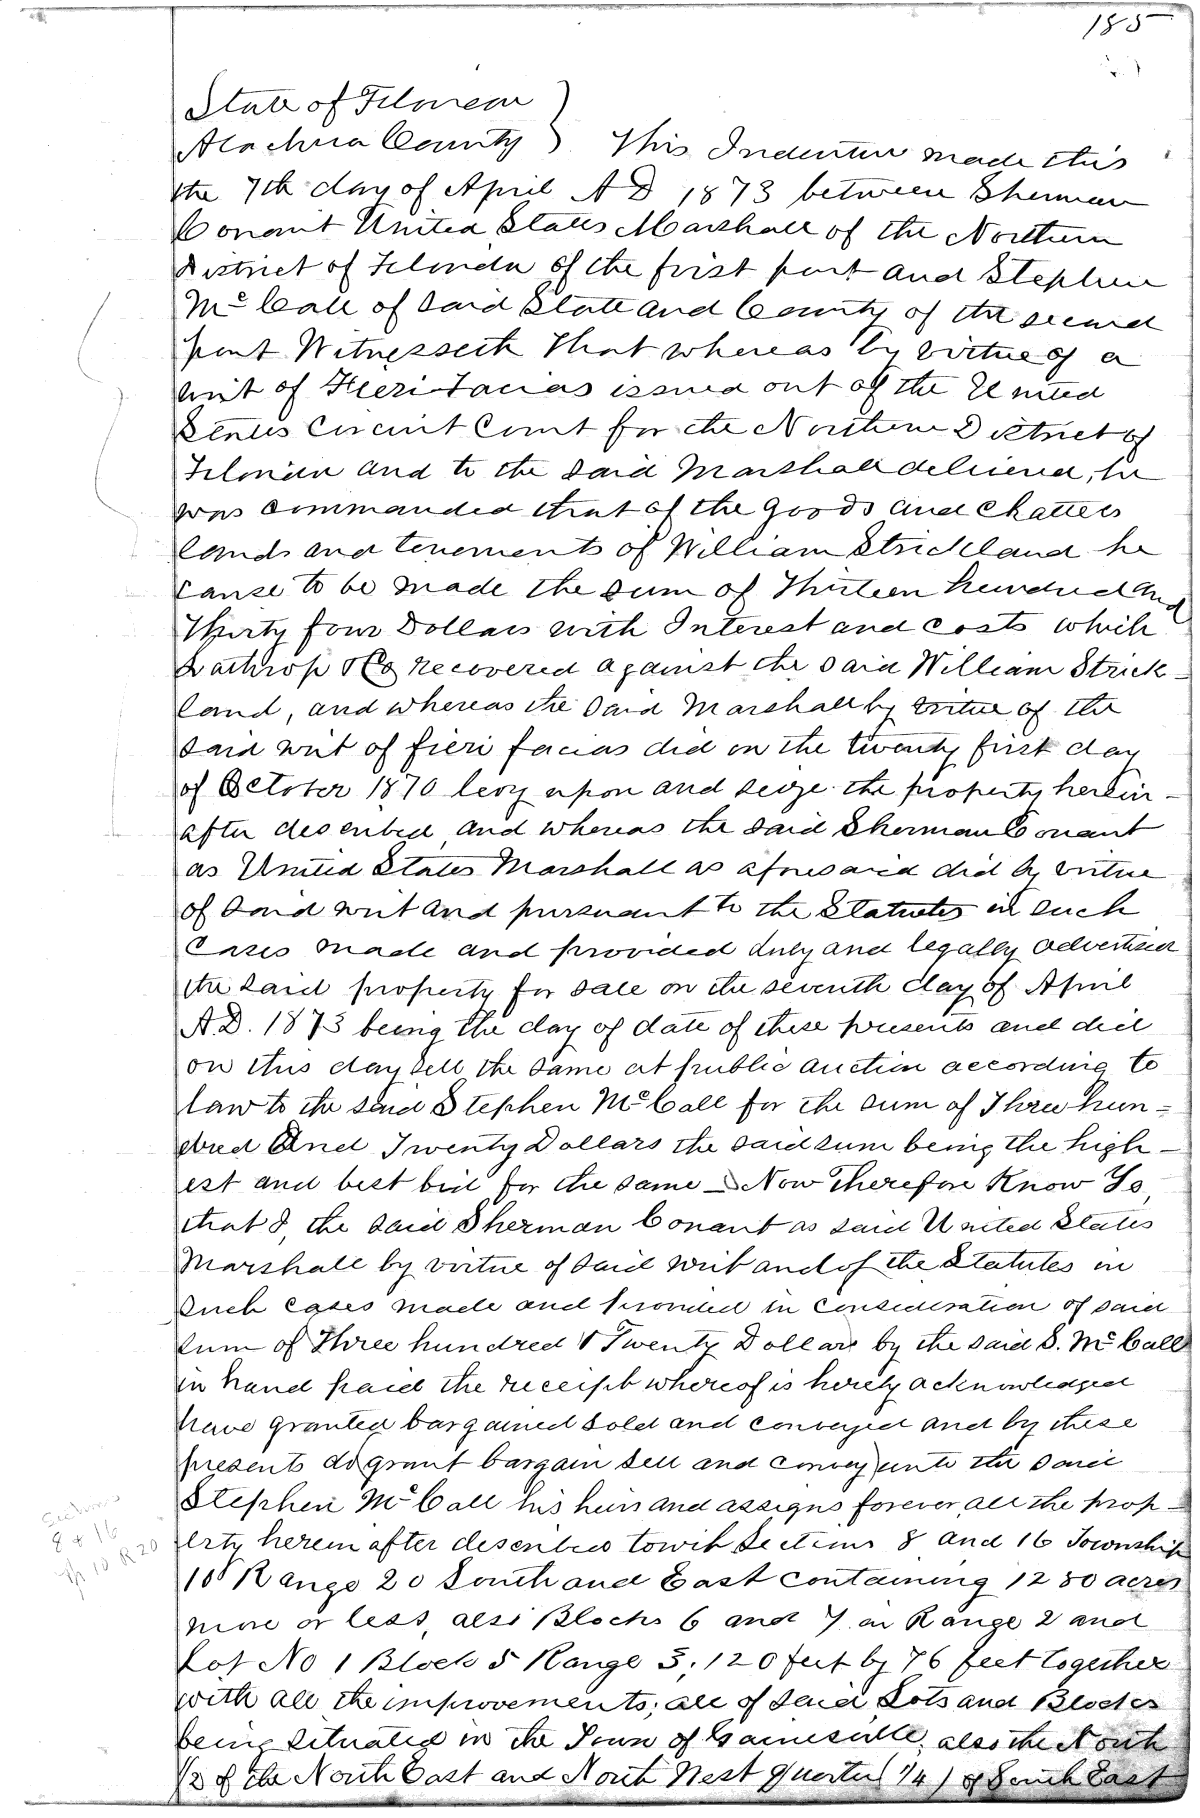 185
State of Florida }
Alachua County } This Indenture made this
the 7th day of April A D 1873 between Sherman
Conant United States Marshall of the Northern
District of Florida of the first part and Stephen
McCall of said State and County of the second
part Witnesseth that whereas by virtue of a
writ of Fieri Facias issued out of the United
States Circuit Court for the Northern District of
Florida and to the said Marshall delivered, he
was commanded that of the goods and Chattels
lands and tenements of William Strickland he
cause to be made the sum of Thirteen hundred and
Thirty four Dollars with Interest and costs which
Lathrop & Co recovered against the said William Strick-
land, and whereas the said Marshall by virtue of the
said writ of fieri facias did on the twenty first day
of October 1870 levy upon and seize the property herein-
after described, and whereas the said Sherman Conant
as United States Marshall as aforesaid did by virtue
of said writ and pursuant to the Statutes in such
Cases made and provided duly and legally advertised
the said property for sale on the seventh day of April
A.D. 1873 being the day of date of these presents and did
on this day sell the same at public auction according to
law to the said Stephen McCall for the sum of Three hun=
dred And Twenty Dollars the said sum being the high-
est and best bid for the same _ Now Therefore Know Ye,
that I, the said Sherman Conant as said United States
Marshall by virtue of said writ and of the Statutes in
such cases made and provided in consideration of said
sum of Three hundred & Twenty Dollars by the said S. McCall
in hand paid the receipt whereof is hereby acknowledged
have granted bargained sold and conveyed and by these
presents do (grant bargain sell and convey) unto the said
Stephen McCall his heirs and assigns forever all the prop-
erty herein after described towit Sections 8 and 16 Township
10 Range 20 South and East containing 1280 acres
more or less, also Blocks 6 and 7 in Range 2 and
Lot No 1 Block 5 Range 3; 120 feet by 76 feet together
with all the improvements; all of said Lots and Blocks
being situated in the Town of Gainesville, also the North
1/2 of the North East and North West Quarter (1/4) of South East
Sections
8 + 16
Tp 10 R 20